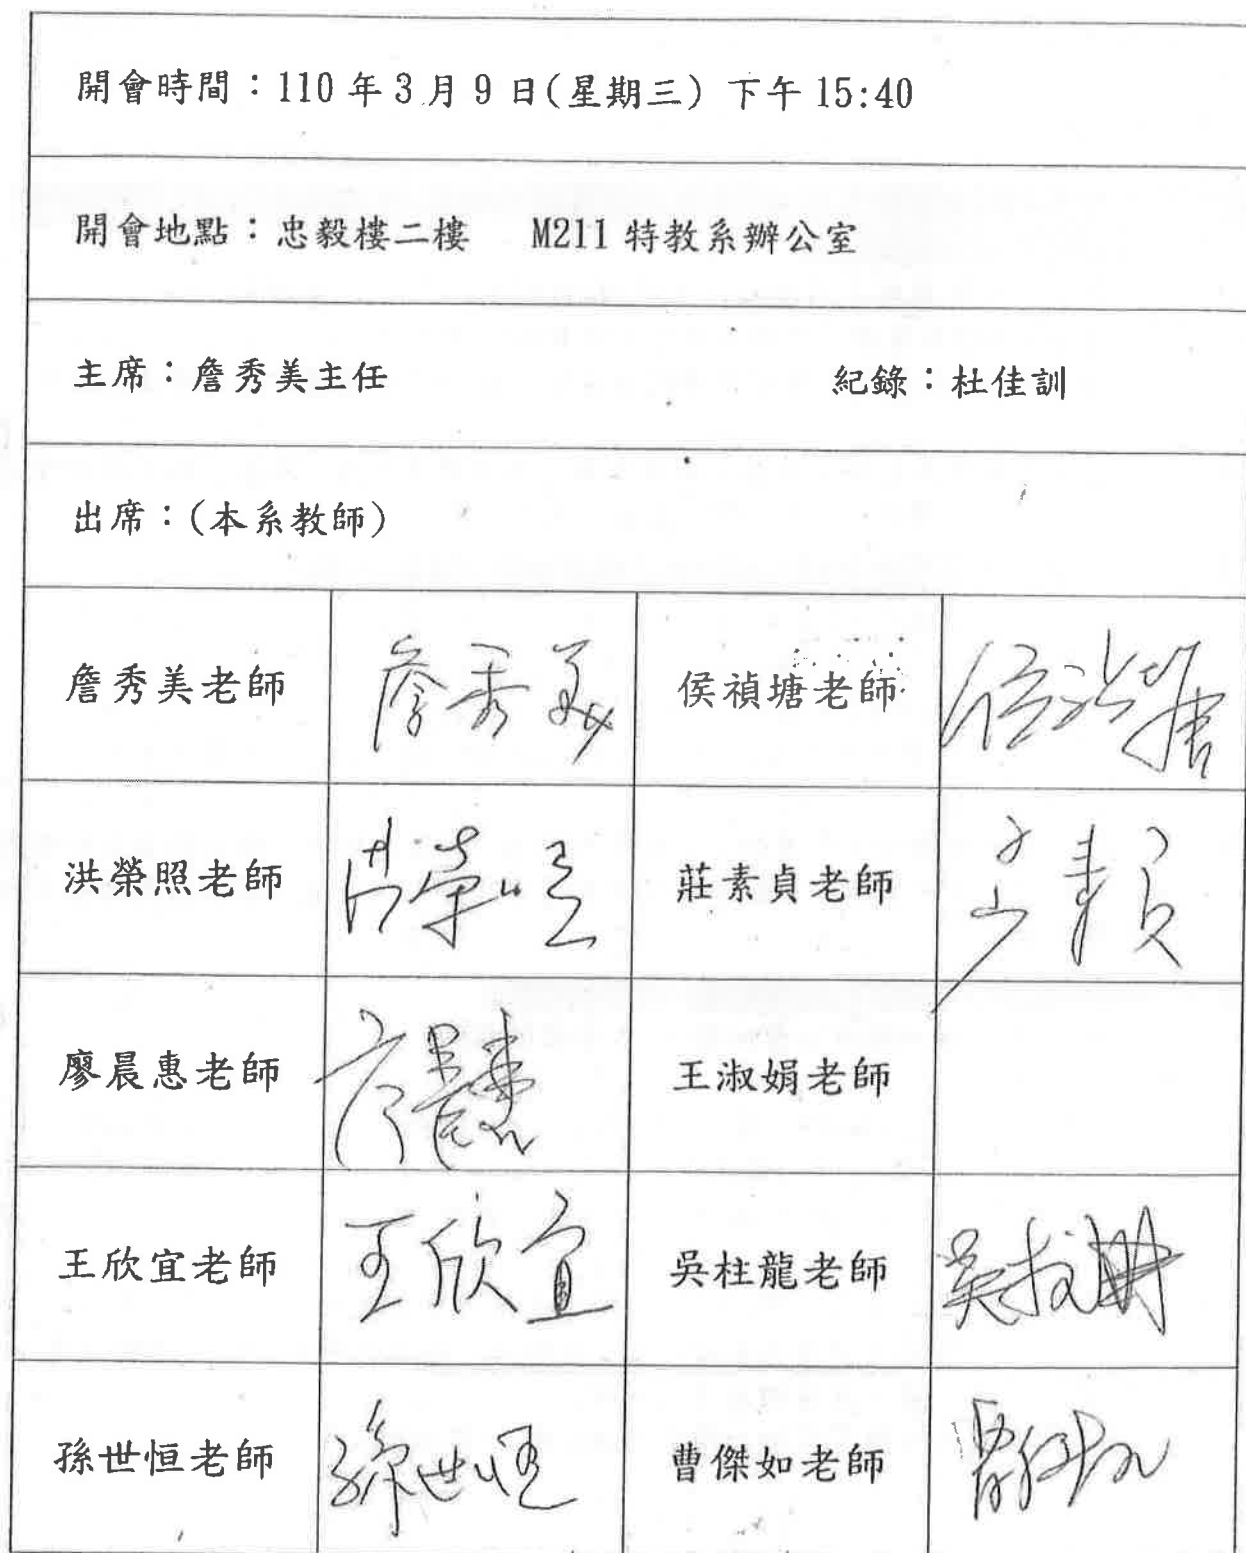 開會時間：110 年 3 月 9 日(星期三) 下午 15:40
開會地點：忠毅樓二樓 M211 特教系辦公室
主席：詹秀美主任 紀錄：杜佳訓
出席：(本系教師)
詹秀美老師 詹秀美 侯禎塘老師 侯禎塘
洪榮照老師 洪榮照 莊素貞老師 莊素貞
廖晨惠老師 廖晨惠 王淑娟老師
王欣宜老師 王欣宜 吳柱龍老師 吳柱龍
孫世恒老師 孫世恒 曹傑如老師 曹傑如